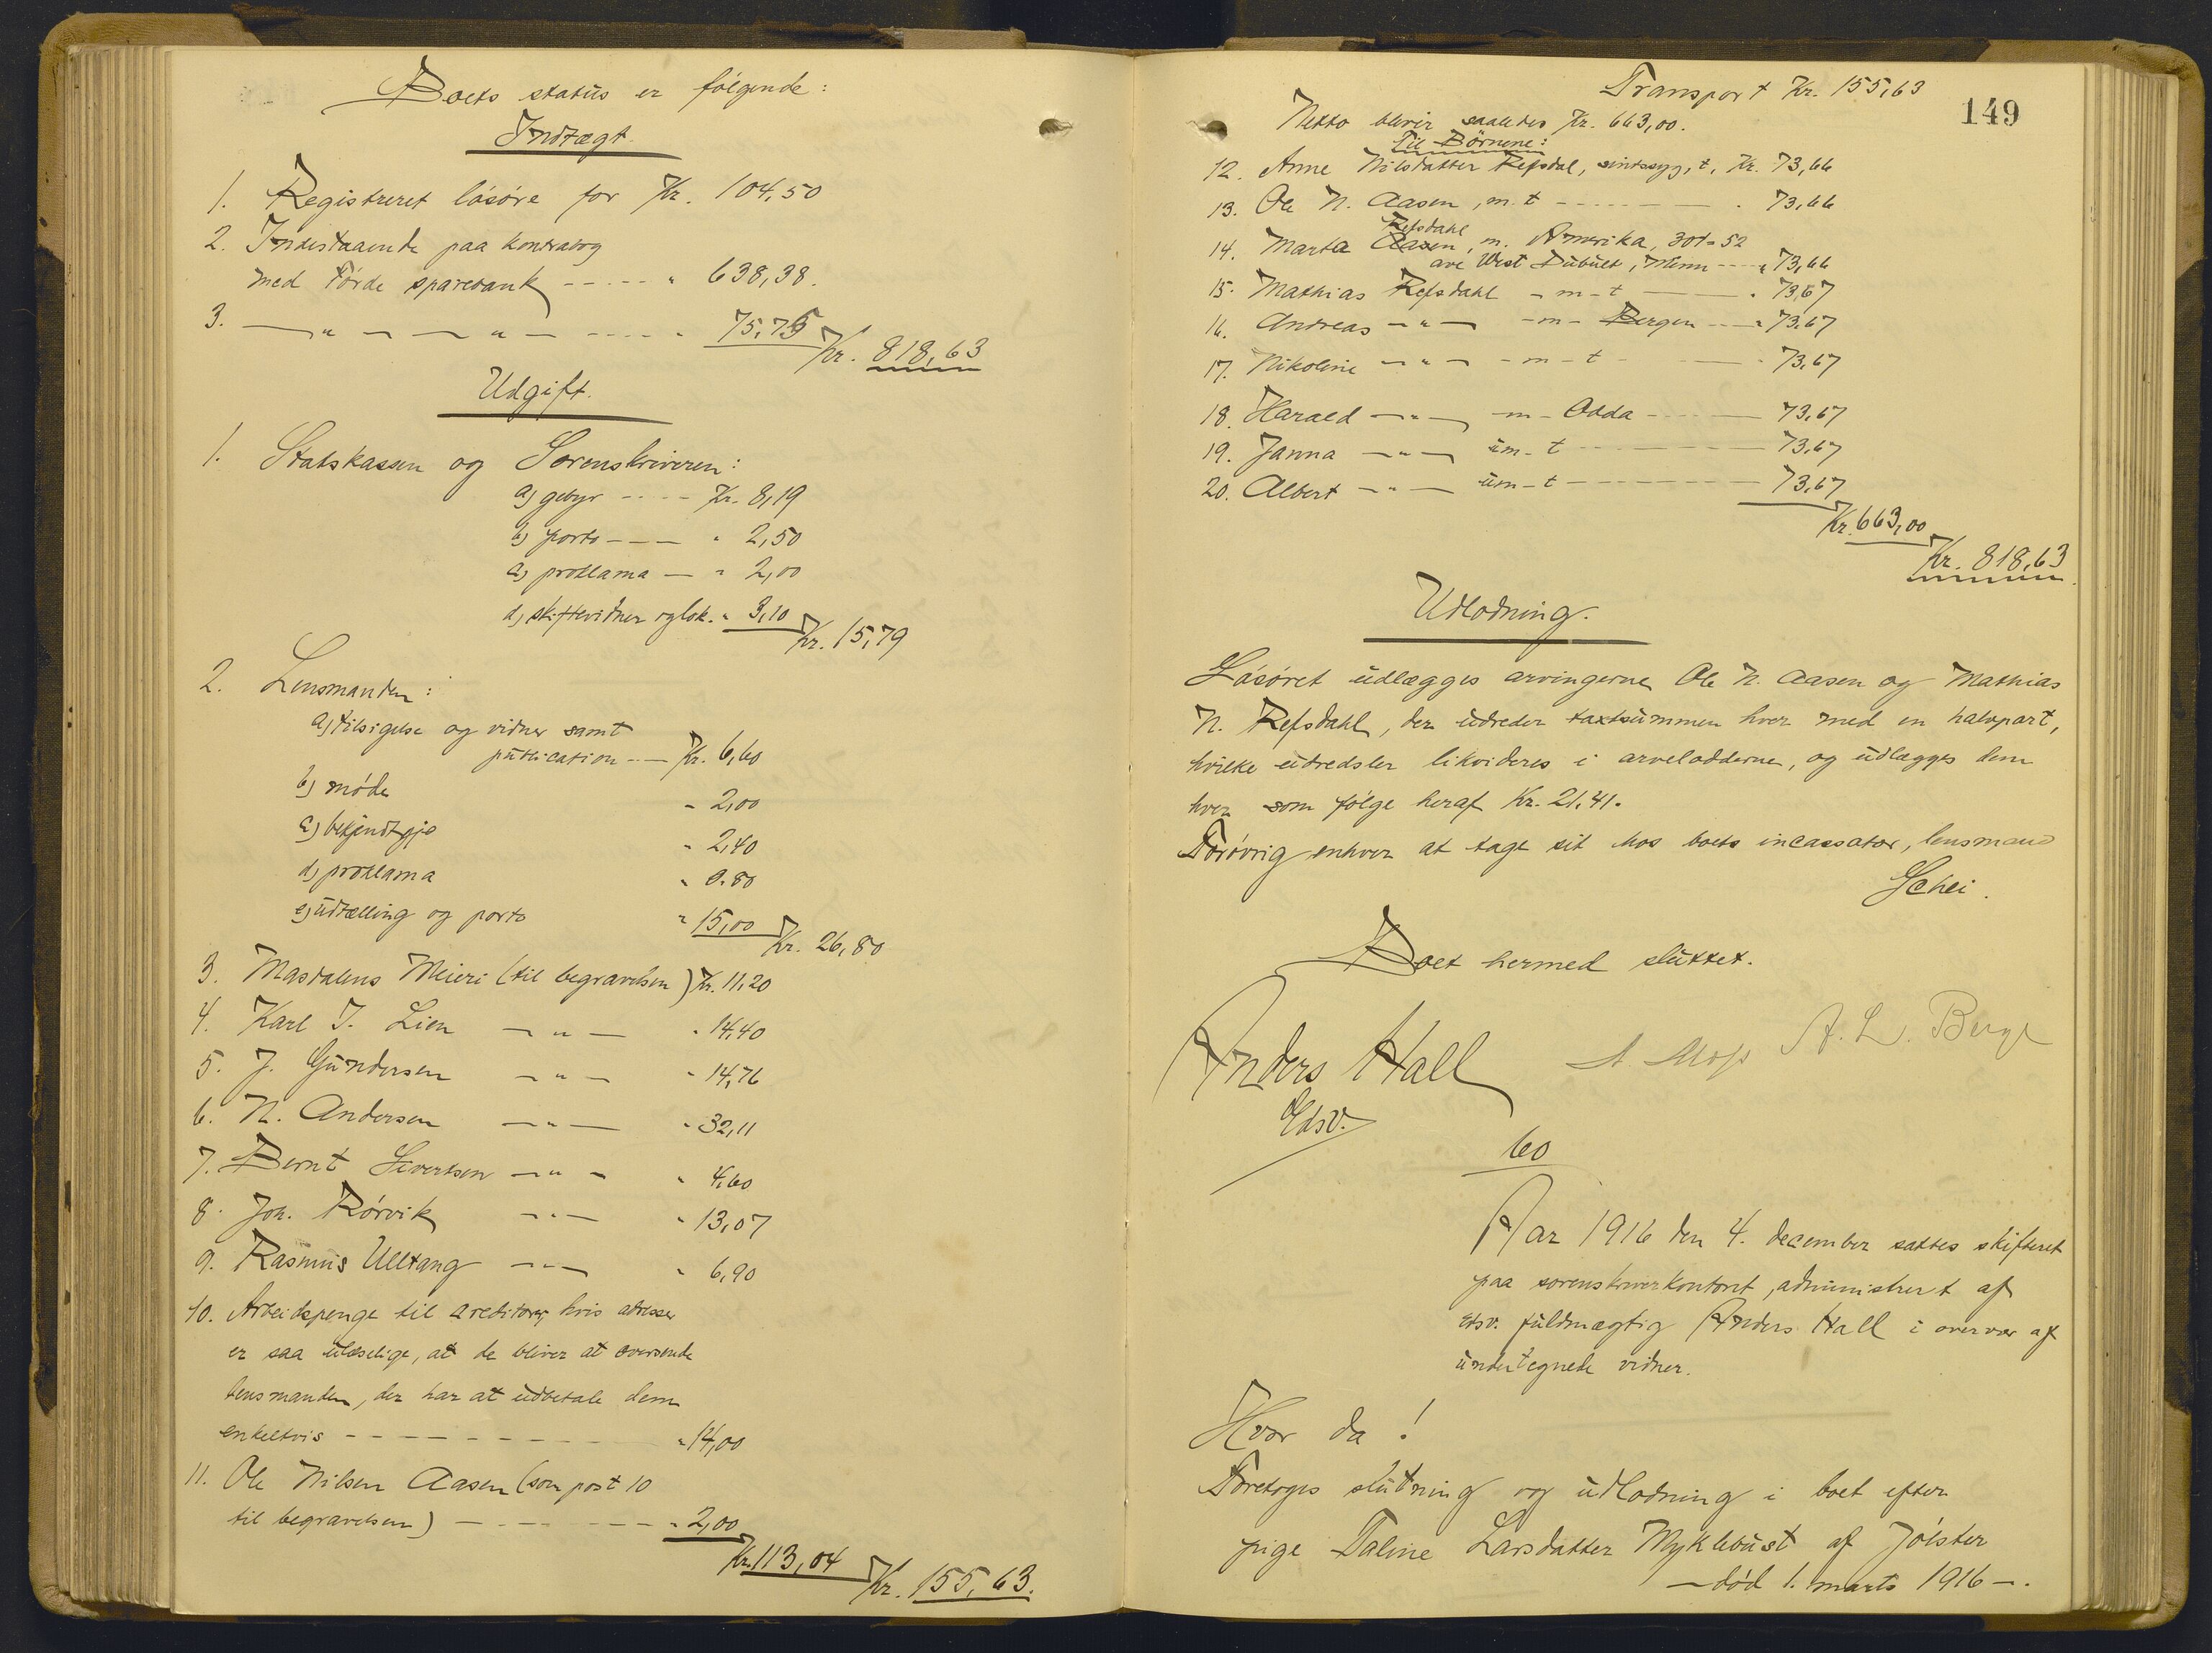 Boets status er følgende:
Indtægt.
1. Registreret løsøre for Kr. 104,50
2. Indestaaende paa kontrabog
med Førde sparebank ----- " 638,38.
3. — " — — " — ---- " 75,75 Kr. 818,63
Udgift.
1. Statskassen og Sorenskriveren:
a) gebyr ---- Kr. 8,19
b) porto --- " 2,50
c) proklama — " 2,00
d) skiftevidner og lok. " 3,10 Kr. 15,79
2. Lensmanden:
a) tilsigelse og vidner samt
publication --- Kr. 6,60
b) møde " 2,00
c) bekjendtgje " 2,40
d) proklama " 0.80
e) udtælling og porto " 15,00 Kr. 26,80
3. Masdalens Meieri (til begravelsen) Kr. 11,20
4. Karl J. Lien — " — " 14,40
5. J. Gundersen — " — " 14,76
6. N. Andersen — " — " 32,11
7. Bernt Sivertsen — " — " 4,60
8. Joh. Rørvik — " — " 13,07
9. Rasmus Ulltang — " — " 6,90
10. Arbeidspenge til creditorer, hvis adresser
er saa ulæselige, at de bliver at oversende
lensmanden, der har at udbetale dem
enkeltvis - - - - - - - " 14,00
11. Ole Nilsen Aasen (som post 10
til begravelsen) — - - - - - " 2,00
Kr. 113,04 Kr. 155,63.
Transport Kr. 155,63
149
Netto blivir saaledes Kr. 663,00.
Til Børnene:
12. Anne Nilsdatter Refsdal, sindssyg, t, Kr. 73,66
13. Ole N. Aasen, m. t - - - - - — " 73,66
Refsdahl
14. Marta Aasen, m. Amerika, 301-52
ave West Dubult, Minn --- " 73,66
15. Mathias Refsdahl - m - t — " 73,67
16. Andreas — " — - m - Bergen --- " 73,67
17. Nikoline — " — - m - t - — " 73,67
18. Harald — " — - m - Odda - - — 73,67
19. Janna — " — um - t - - - — 73,67
20. Albert — " — um - t - - - — 73,67
Kr. 663,00
Kr. 818,63
Udlodning.
Løsøret udlægges arvingerne Ole N. Aasen og Mathias
N. Refsdahl, der udreder taxtsummen hver med en halvpart,
hvilke udredsler likvideres i arvelodderne, og udlægges dem
hver som følge heraf Kr. 21,41.
Forøvrig enhver at tage sit hos boets incassator, lensmand
Schei.
Boet hermed sluttet.
Anders Hall A. Moss A. L. Berge
Edsv.
60
Aar 1916 den 4. december sattes skifteret
paa sorenskriverkontoret, administrert af
edsv. fuldmægtig Anders Hall i overvær af
undertegnede vidner.
Hvor da!
Foretoges slutning og udlodning i boet efter
pige Taline Larsdatter Myklebust af Jølster
— død 1. marts 1916 —.